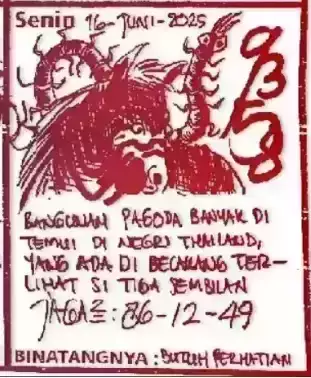 Senin 16-JUNI-2025
9358
BANGUNAN PAGODA BANYAK DI
TEMUI DI NEGRI THAILAND,
YANG ADA DI BELAKANG TER-
LIHAT SI TIGA SEMBILAN
JAGA2: 86-12-49
BINATANGNYA: BUTUH PERHATIAN